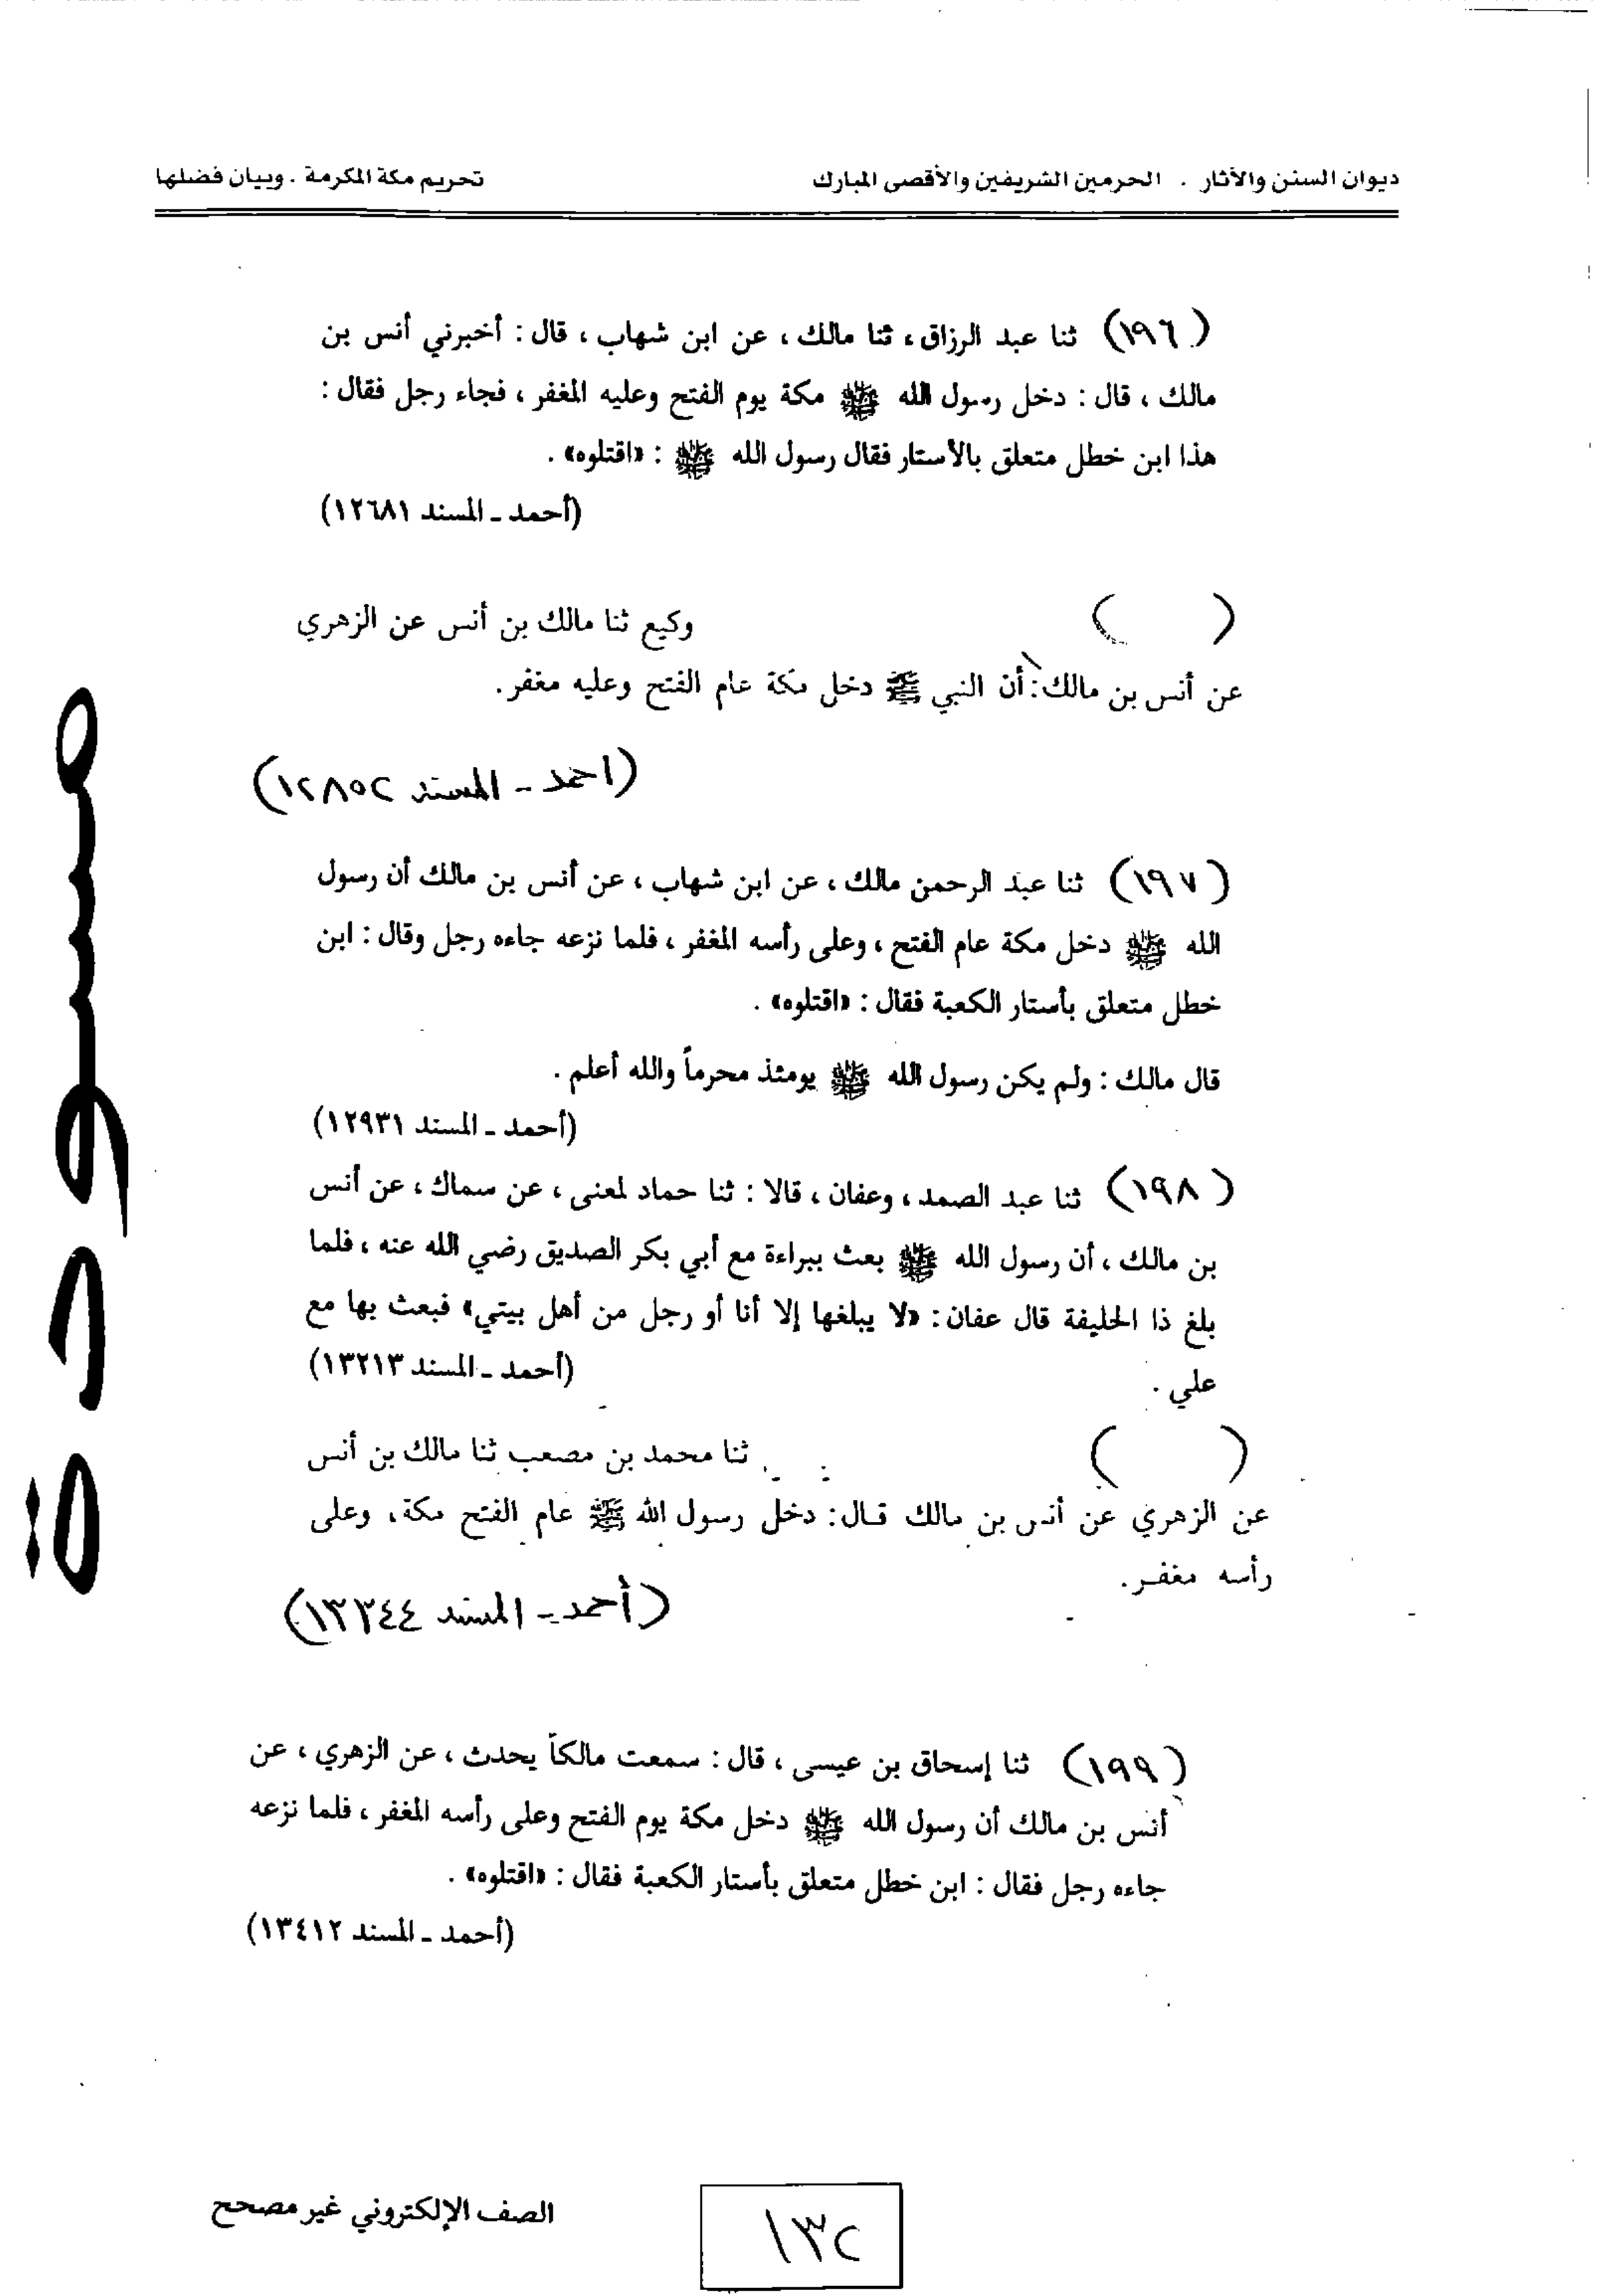 ديوان السنن والآثار . الحرمين الشريفين والأقصى المبارك تحريم مكة المكرمة . وبيان فضلها
(١٩٦) ثنا عبد الرزاق ، ثنا مالك ، عن ابن شهاب ، قال : أخبرني أنس بن
مالك ، قال : دخل رسول الله ﷺ مكة يوم الفتح وعليه المغفر ، فجاء رجل فقال :
هذا ابن خطل متعلق بالأستار فقال رسول الله ﷺ : «اقتلوه» .
(أحمد ـ المسند ١٢٦٨١)
( ) وكيع ثنا مالك بن أنس عن الزهري
عن أنس بن مالك: أن النبي ﷺ دخل مكة عام الفتح وعليه مغفر.
(احمد - المسند ١٢٨٥٢)
(١٩٧) ثنا عبد الرحمن مالك ، عن ابن شهاب ، عن أنس بن مالك أن رسول
الله ﷺ دخل مكة عام الفتح ، وعلى رأسه المغفر ، فلما نزعه جاءه رجل وقال : ابن
خطل متعلق بأستار الكعبة فقال : «اقتلوه» .
قال مالك : ولم يكن رسول الله ﷺ يومئذ محرماً والله أعلم .
(أحمد ـ المسند ١٢٩٣١)
(١٩٨) ثنا عبد الصمد ، وعفان ، قالا : ثنا حماد لمعنى ، عن سماك ، عن أنس
بن مالك ، أن رسول الله ﷺ بعث ببراءة مع أبي بكر الصديق رضي الله عنه ، فلما
بلغ ذا الحليفة قال عفان : «لا يبلغها إلا أنا أو رجل من أهل بيتي» فبعث بها مع
علي .
(أحمد ـ المسند ١٣٢١٣)
( ) ثنا محمد بن مصعب ثنا مالك بن أنس
عن الزهري عن أنس بن مالك قال: دخل رسول الله ﷺ عام الفتح مكة، وعلى
رأسه مغفر.
(أحمد - المسند ١٣٣٤٤)
(١٩٩) ثنا إسحاق بن عيسى ، قال : سمعت مالكاً يحدث ، عن الزهري ، عن
أنس بن مالك أن رسول الله ﷺ دخل مكة يوم الفتح وعلى رأسه المغفر ، فلما نزعه
جاءه رجل فقال : ابن خطل متعلق بأستار الكعبة فقال : «اقتلوه» .
(أحمد ـ المسند ١٣٤١٢)
مسودة
الصف الإلكتروني غير مصحح
١٣٢